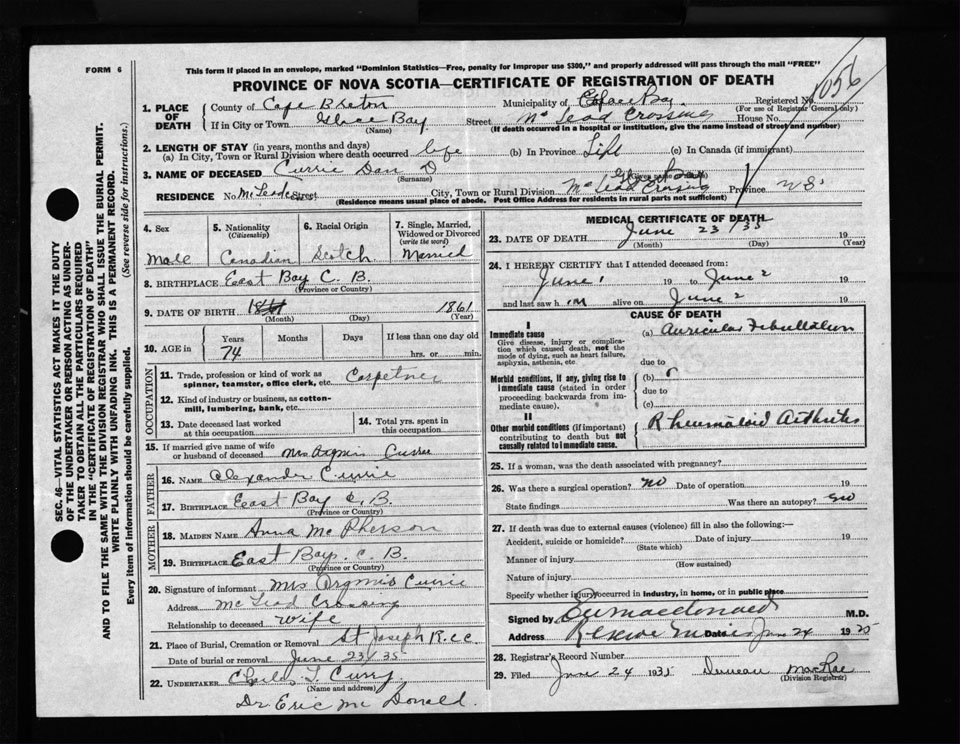 FORM 6
This form if placed in an envelope, marked "Dominion Statistics—Free, penalty for improper use $300," and properly addressed will pass through the mail "FREE"
PROVINCE OF NOVA SCOTIA—CERTIFICATE OF REGISTRATION OF DEATH
1056
SEC. 46—VITAL STATISTICS ACT MAKES IT THE DUTY
OF THE UNDERTAKER OR PERSON ACTING AS UNDER-
TAKER TO OBTAIN ALL THE PARTICULARS REQUIRED
IN THE "CERTIFICATE OF REGISTRATION OF DEATH"
AND TO FILE THE SAME WITH THE DIVISION REGISTRAR WHO SHALL ISSUE THE BURIAL PERMIT.
WRITE PLAINLY WITH UNFADING INK. THIS IS A PERMANENT RECORD.
Every item of information should be carefully supplied. (See reverse side for instructions.)
1. PLACE OF DEATH County of Cape Breton Municipality of Glace Bay Registered No.
(For use of Registrar General only)
If in City or Town Glace Bay Street Mc Lead Crossing House No.
(Name) (If death occurred in a hospital or institution, give the name instead of street and number)
2. LENGTH OF STAY (in years, months and days)
(a) In City, Town or Rural Division where death occurred life (b) In Province Life (c) In Canada (if immigrant)
3. NAME OF DECEASED Currie Dan D
(Surname)
RESIDENCE No. Mc Leads Street City, Town or Rural Division Mc Lead Crossing Province N S.
(Residence means usual place of abode. Post Office Address for residents in rural parts not sufficient)
4. Sex Male
5. Nationality (Citizenship) Canadian
6. Racial Origin Scotch
7. Single, Married, Widowed or Divorced (write the word) Married
8. BIRTHPLACE East Bay C. B.
(Province or Country)
9. DATE OF BIRTH 1861
(Month) (Day) (Year)
10. AGE in Years 74 Months Days If less than one day old hrs. or min.
OCCUPATION
11. Trade, profession or kind of work as spinner, teamster, office clerk, etc. Carpetner
12. Kind of industry or business, as cotton-mill, lumbering, bank, etc.
13. Date deceased last worked at this occupation
14. Total yrs. spent in this occupation
15. If married give name of wife or husband of deceased Mrs Currie
FATHER
16. NAME Alexander Currie
17. BIRTHPLACE East Bay C. B.
(Province or Country)
MOTHER
18. MAIDEN NAME Anna Mc Pherson
19. BIRTHPLACE East Bay. C. B.
(Province or Country)
20. Signature of informant Mrs Currie
Address Mc Lead Crossing
Relationship to deceased Wife
21. Place of Burial, Cremation or Removal St Joseph R.C.C.
Date of burial or removal June 23/35
22. UNDERTAKER Charles J Curry
(Name and address)
Dr Eric Mc Donald.
MEDICAL CERTIFICATE OF DEATH
23. DATE OF DEATH June 23/35 19
(Month) (Day) (Year)
24. I HEREBY CERTIFY that I attended deceased from:
June 1 19 to June 2 19
and last saw him alive on June 2 19
CAUSE OF DEATH
I
Immediate cause
Give disease, injury or complication which caused death, not the mode of dying, such as heart failure, asphyxia, asthenia, etc
(a) Auricular Fibrillation
due to
Morbid conditions, if any, giving rise to immediate cause (stated in order proceeding backwards from immediate cause).
(b)
due to
(c)
II
Other morbid conditions (if important) contributing to death but not causally related to immediate cause.
Rheumatoid Arthritis
25. If a woman, was the death associated with pregnancy?
26. Was there a surgical operation? No Date of operation 19
State findings Was there an autopsy? No
27. If death was due to external causes (violence) fill in also the following:—
Accident, suicide or homicide? Date of injury 19
(State which)
Manner of injury
(How sustained)
Nature of injury
Specify whether injury occurred in Industry, in home, or in public place
Signed by E. Macdonald M.D.
Address Reserve Mines Date June 24 1935
28. Registrar's Record Number
29. Filed June 24 1935 Duncan MacRae
(Division Registrar)